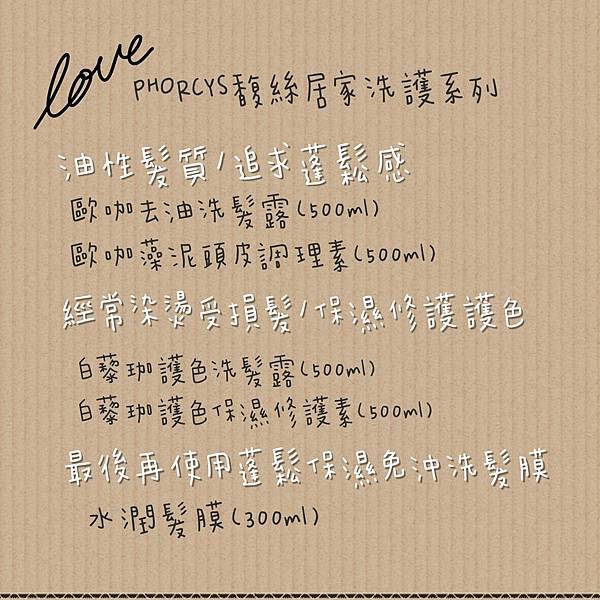 love
PHORCYS馥絲居家洗護系列
油性髮質/追求蓬鬆感
歐咖去油洗髮露(500ml)
歐咖藻泥頭皮調理素(500ml)
經常染燙受損髮/保濕修護護色
白藜珈護色洗髮露(500ml)
白藜珈護色保濕修護素(500ml)
最後再使用蓬鬆保濕免沖洗髮膜
水潤髮膜(300ml)